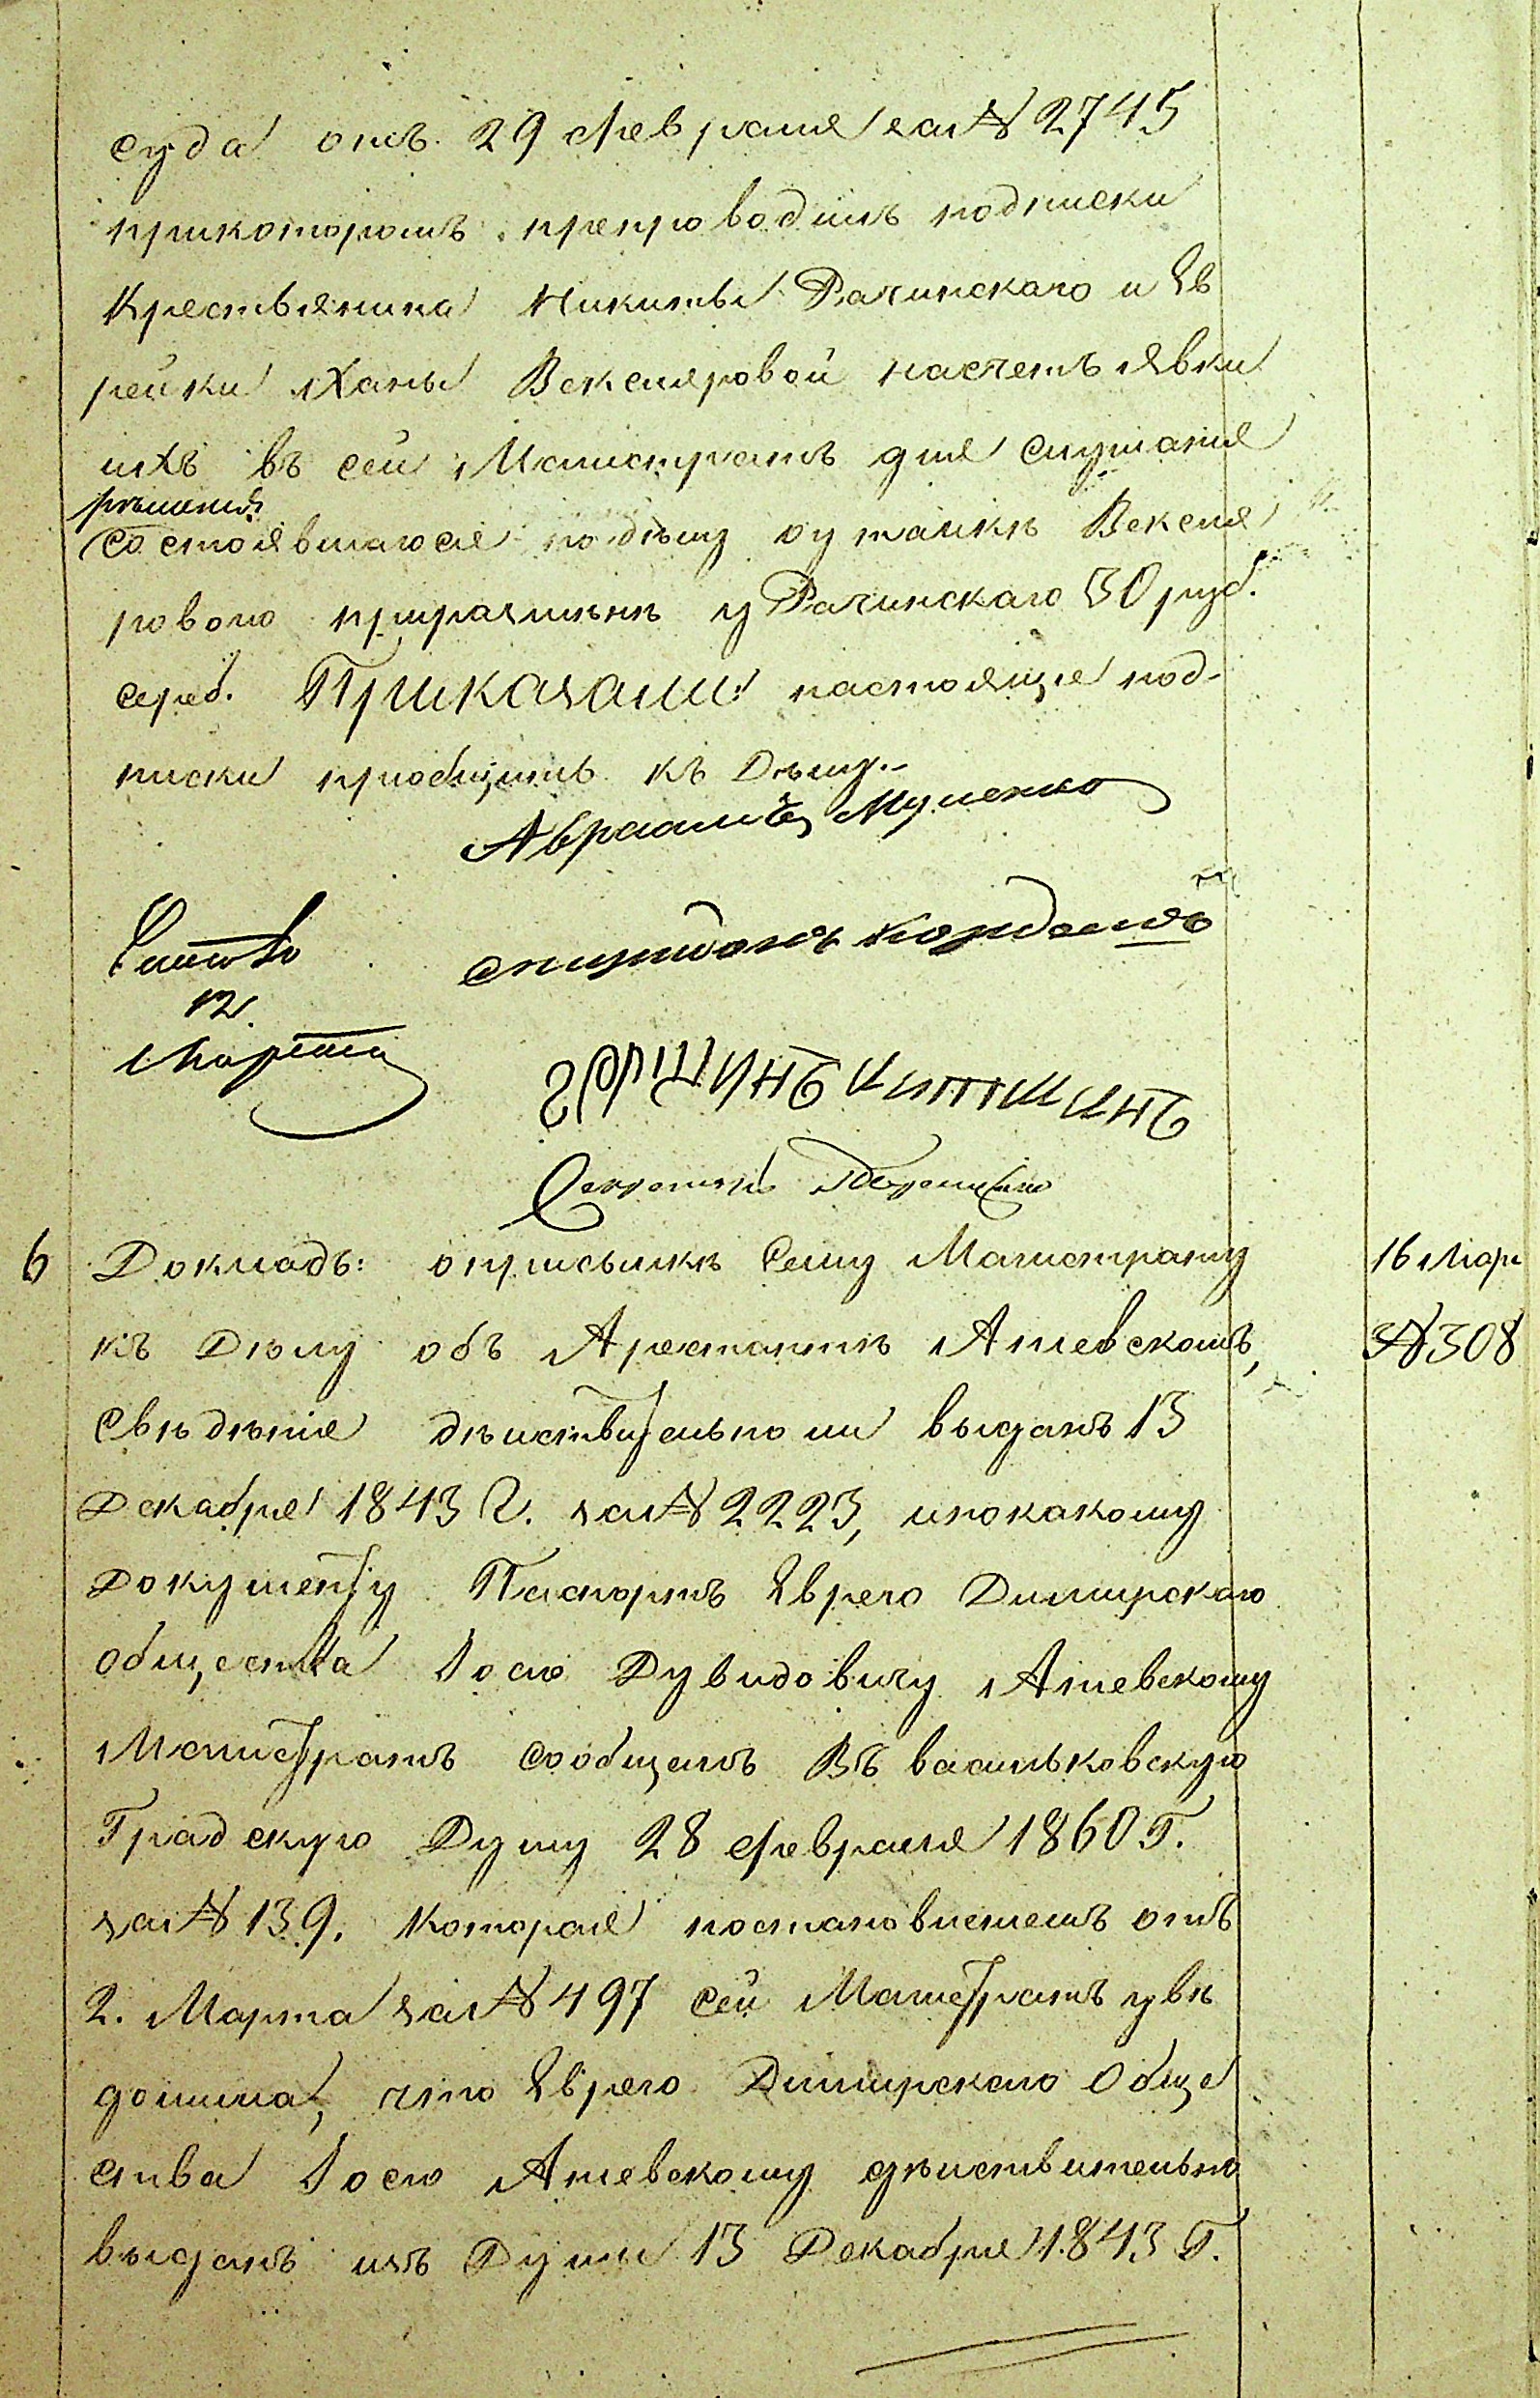 суда отъ 29 февраля за № 2745
прикоторомъ препроводилъ подписки
Крестьянина Никиты Рачинскаго и Ев
рейки Ханы Векслеровой насчетъ явки
ихъ въ сей Магистратъ для слушанія
рѣшенія
состоявшагося подѣлу оутайкѣ Вексле
ровою приразмѣнѣ у Рачинскаго 50 руб.
сереб. Приказали: настоящіе под-
писки пріобщить къ Дѣлу.-
Авраамъ
Читалъ
спиридонъ
12
Марта
Секретарь
6 Докладъ: оприсылкѣ Сему Магистрату
16 Мар
къ Дѣлу объ Арестантѣ Аниевскомъ,
№ 308
Свѣдѣніе дѣйствительно ли выданъ 13
Декабря 1843 г. за № 2223, ипокакому
Документу Паспортъ Еврею Димирскаго
общества Іосю Дувидовичу Аниевскому
Магистратъ сообщалъ Въ васильковскую
Градскую Думу 28 февраля 1860 г.
за № 139. Которая постановленіемъ отъ
2. Марта за № 497 сей Магистратъ увѣ
домила, что Еврею Димирскаго Обще
ства Іосю Аниевскому дѣйствительно
выданъ изъ Думы 13 Декабря 1843 г.